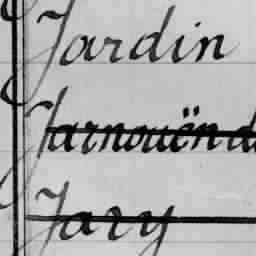 Jardin
Jarnouën d
Jary